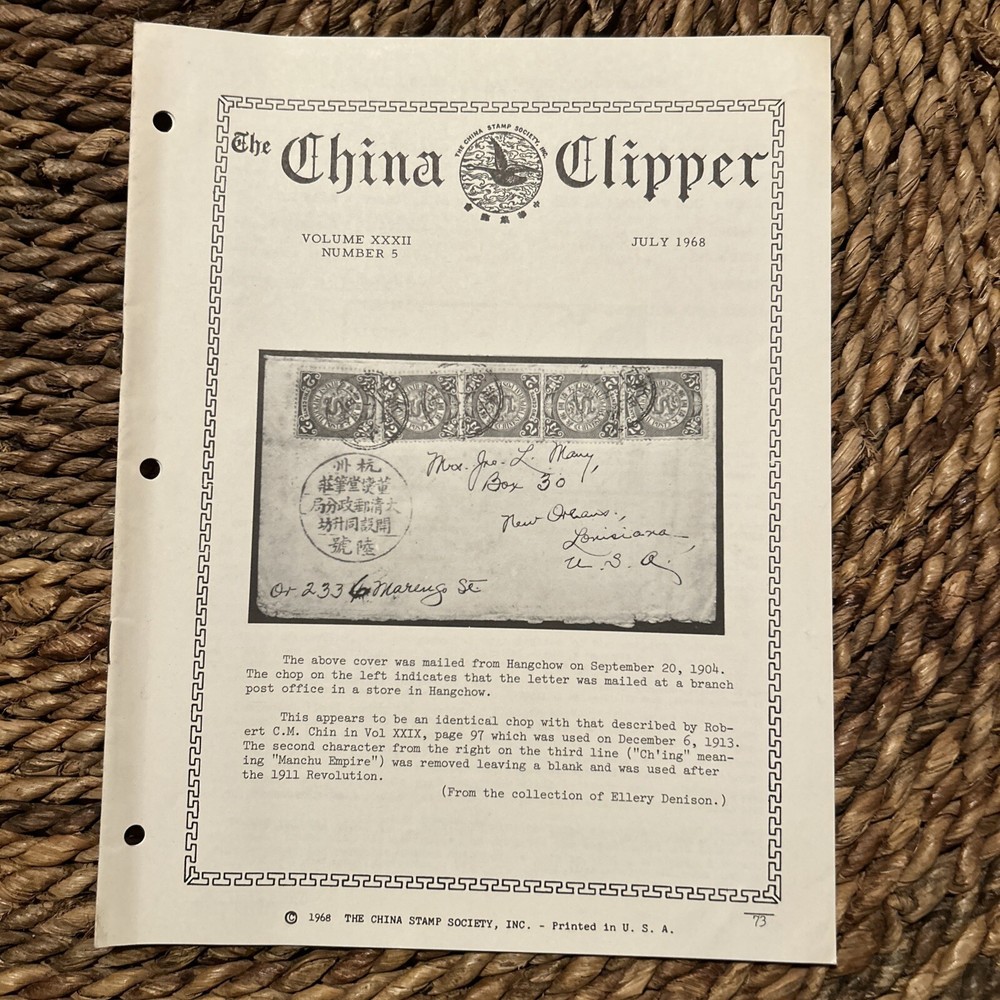 The China Clipper
THE CHINA STAMP SOCIETY, INC.
VOLUME XXXII
NUMBER 5
JULY 1968
杭州
董燮堂筆莊
大清郵政分局
開設同升坊
陸號
Mrs. Jno. L. Many,
Box 30
New Orleans.,
Louisiana
U. S. A.
Or 2336 Marengo St
The above cover was mailed from Hangchow on September 20, 1904.
The chop on the left indicates that the letter was mailed at a branch
post office in a store in Hangchow.
This appears to be an identical chop with that described by Rob-
ert C.M. Chin in Vol XXIX, page 97 which was used on December 6, 1913.
The second character from the right on the third line ("Ch'ing" mean-
ing "Manchu Empire") was removed leaving a blank and was used after
the 1911 Revolution.
(From the collection of Ellery Denison.)
© 1968 THE CHINA STAMP SOCIETY, INC. - Printed in U. S. A.
73